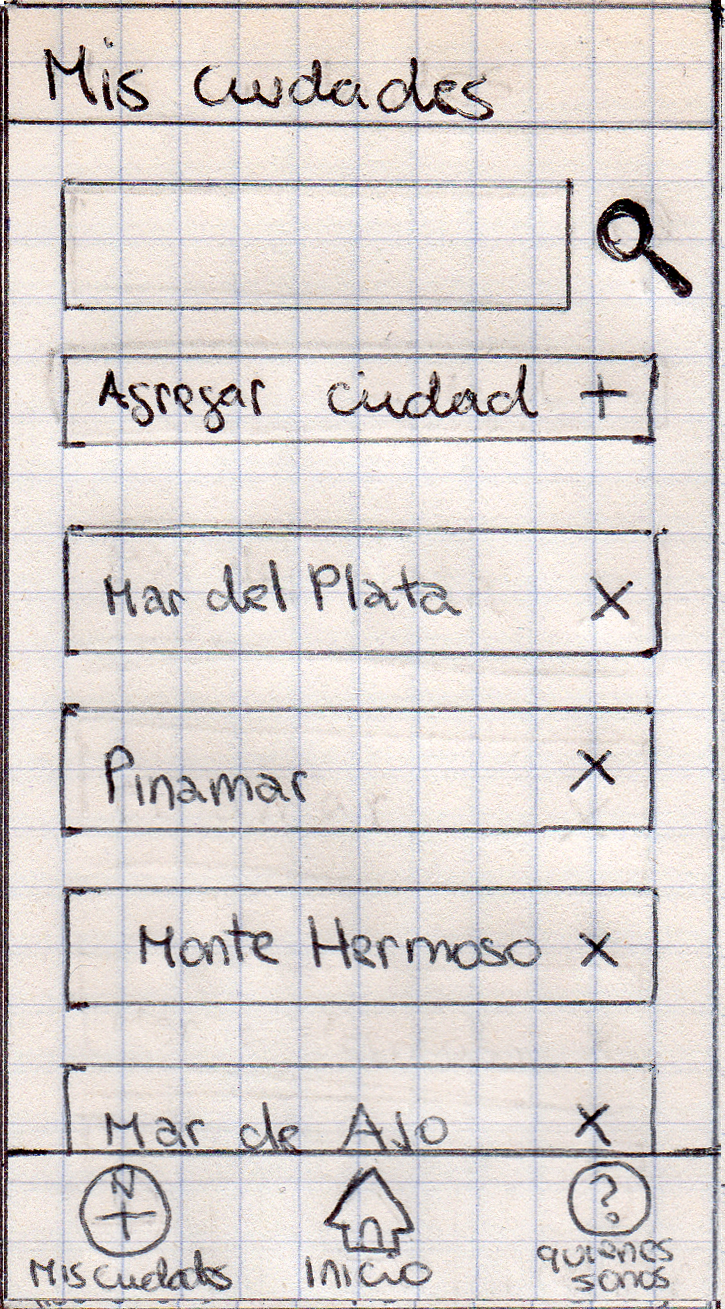 Mis ciudades
Agregar ciudad +
Mar del Plata X
Pinamar X
Monte Hermoso X
Mar de Ajo X
N
?
Mis ciudades
Inicio
quienes
somos